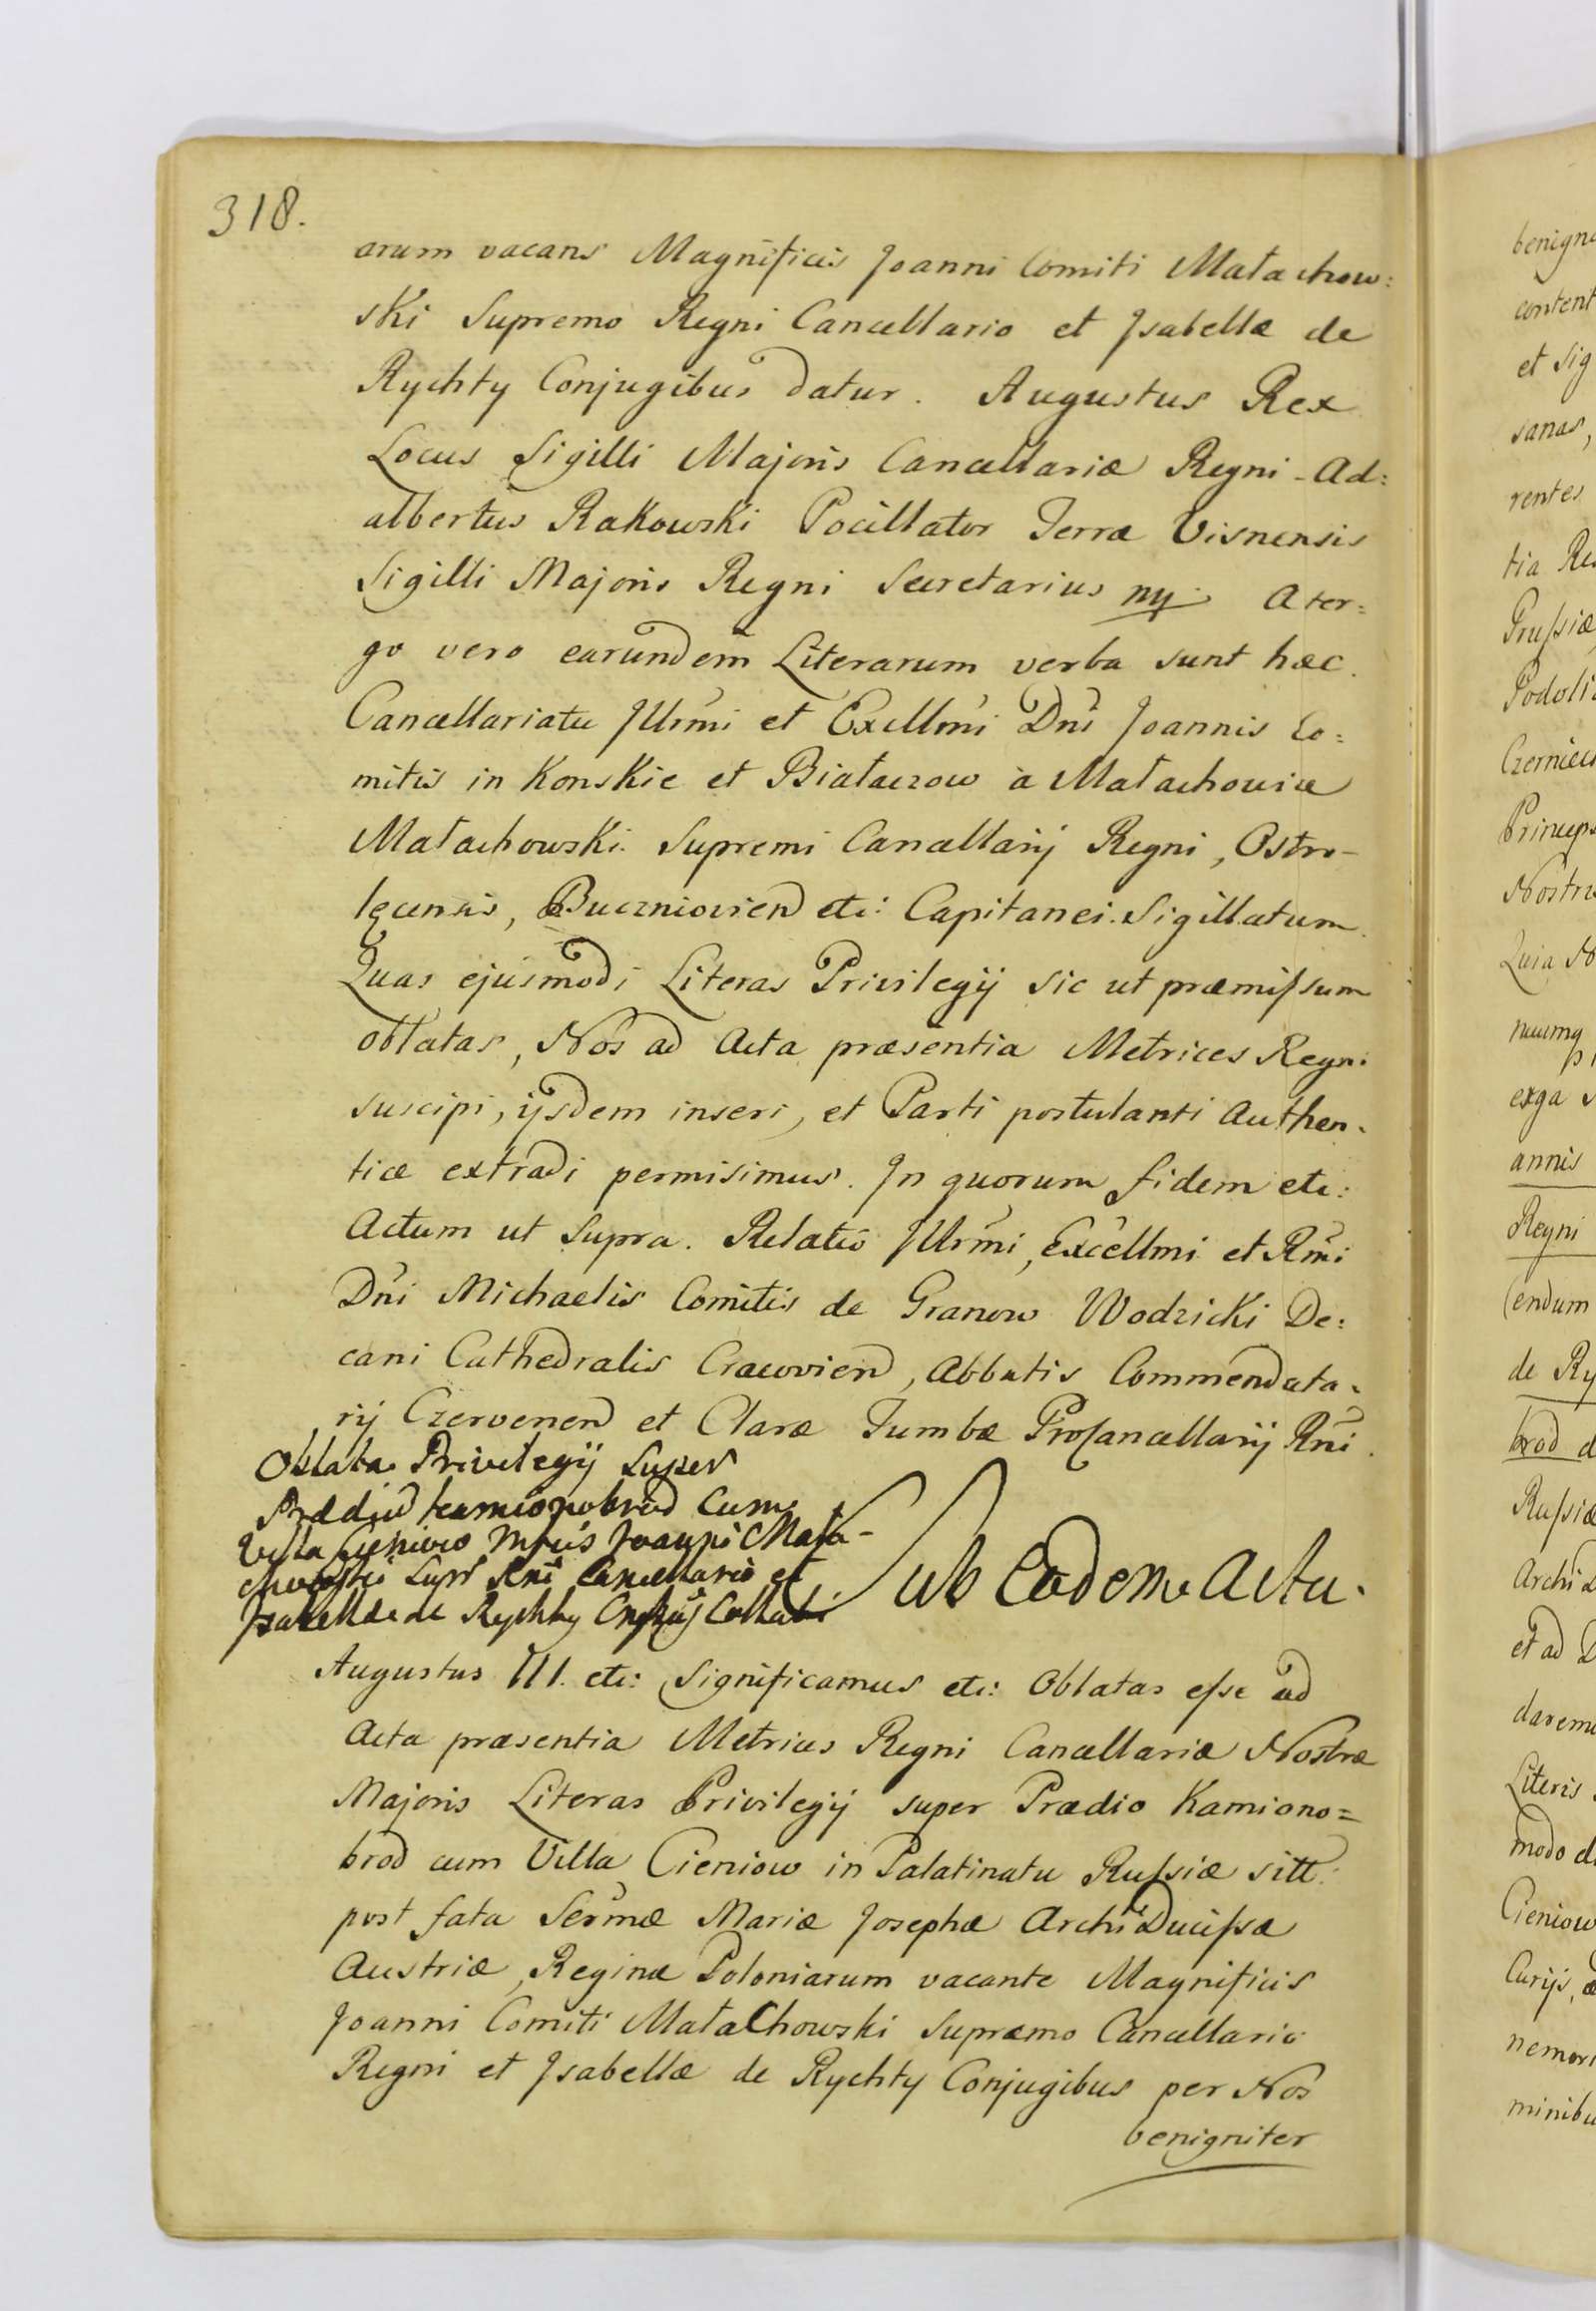 318.
arum vacans Magnificis Joanni Comiti Małachow:
ski Supremo Regni Cancellario et Jsabellæ de
Rychty Conjugibus datur. Augustus Rex
Locus Sigilli Majoris Cancellariæ Regni - Ad:
albertus Rakowski Pocillator Terræ Visnensis
Sigilli Majoris Regni Secretarius A ter:
go vero earundem Literarum verba sunt hæc.
Cancellariatu Jllrmi et Excllmi Dni Joannis Co:
mitis in Konskie et Białaczow à Małachowice
Małachowski Supremi Cancellarij Regni, Ostro-
łęcensis, Buczniovien etc: Capitanei. Sigillatum.
Quas ejusmodi Literas Privilegij sic ut præmissum
oblatas, Nos ad Acta præsentia Metrices Regni
suscipi, ijsdem inseri, et Parti postulanti Authen-
tice extradi permisimus. Jn quorum fidem etc:
Actum ut Supra. Relatio Jllrmi, Excellmi et Rmi
Dni Michaelis Comitis de Granow Wodzicki De:
cani Cathedralis Cracovien, Abbatis Commendata-
rij Czervenen et Claræ Tumbæ ProCancellarij Rni.
Oblata Privilegij Super
Prædio Kamionobrod Cum
Villa Cieniow Mfcis Joanni Mała-
chowski Supr Rni Cancellario et
Jsabellæ de Rychty Collati
Sub Eodem Actu.
Augustus III. etc: Significamus etc: Oblatas esse ad
Acta præsentia Metrices Regni Cancellariæ Nostræ
Majoris Literas Privilegij super Prædio Kamiono=
brod cum Villa Cieniow in Palatinatu Russiæ sitt:
post fata Sermæ Mariæ Josephæ ArchiDucissæ
Austriæ, Reginæ Poloniarum vacante Magnificis
Joanni Comiti MałaChowski Supremo Cancellario
Regni et Jsabellæ de Rychty Conjugibus per Nos
benigniter
content
et Sig
sanas,
rentes
Czerniec
Quia
erga
annis
Regni
de Ry
brod
et ad
Literis
modo
Cieniow
Curijs,